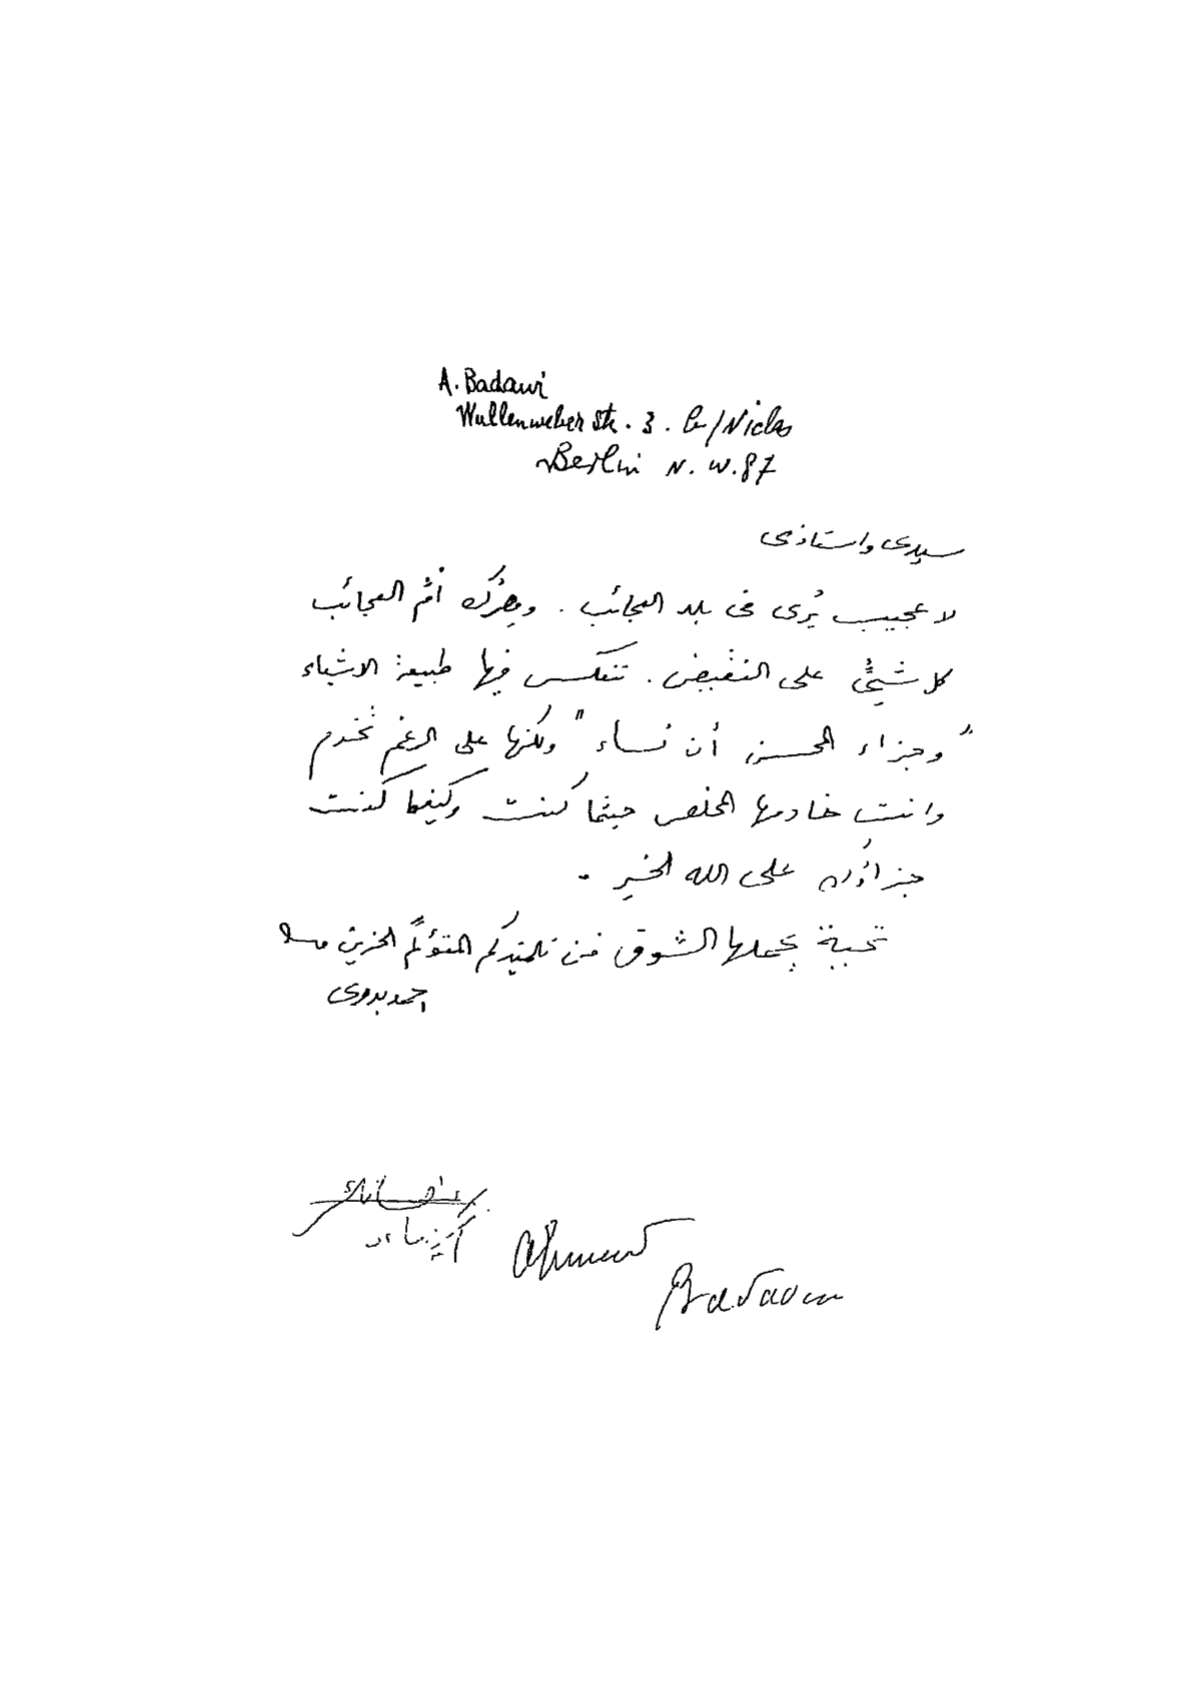 A. Badawi
Wullenweber Str. 3. b/Niclas
Berlin N. W. 87
سيدى واستاذى
لا عجيب يُرى فى بلد العجائب . ومِصْرُك أمُّ العجائب
كل شيئٍ على النقيض . تنعكس فيها طبيعة الاشياء
"وجزاء المحسن أن نساء" ولكنها على الرغم تُخدم
وانت خادمها المخلص حيثما كنت وكيفما كنت
جزاؤك على الله الخير .
تحية يحملها الشوق من تلميذكم المتؤلّم الحزين
احمد بدوى
Ahmed
Badawi